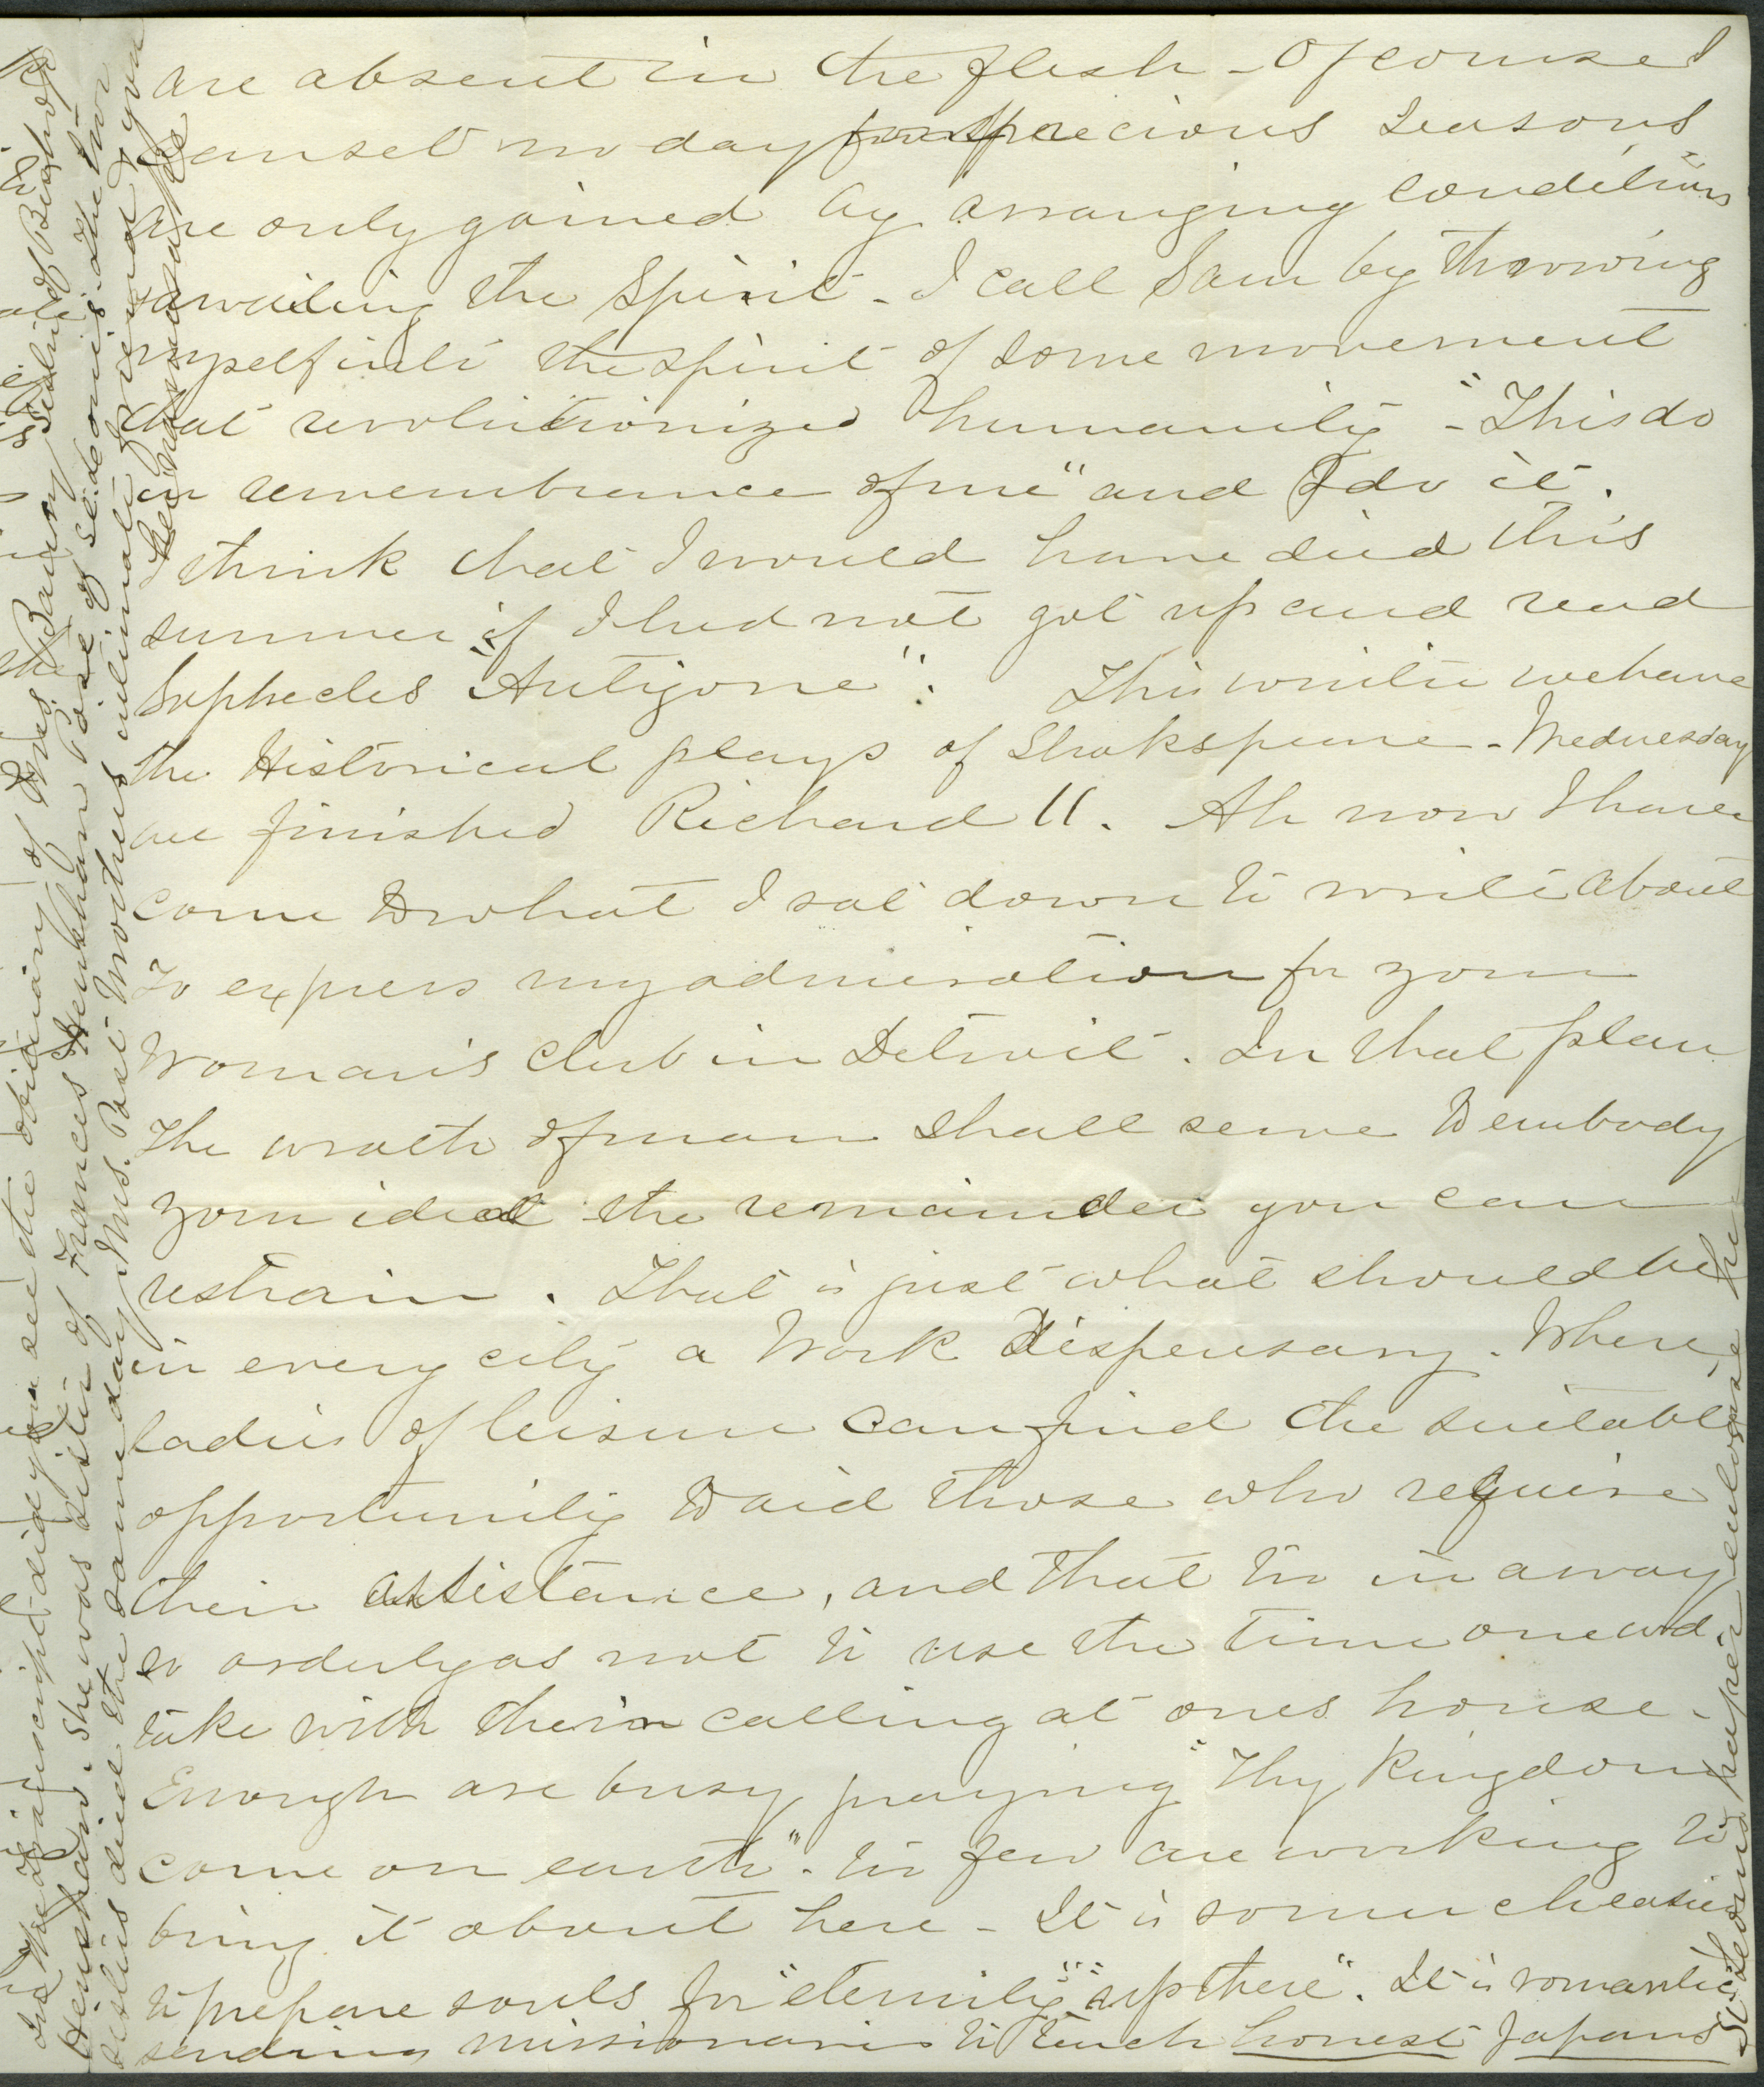 are absent in the flesh - Of course I
cannot no day for precious seasons
are only gained by arranging conditions
awaiting the Spirit - I call Sam by throwing
myself into the spirit of some movement
that revolutionized humanity - "This do
in remembrance of me" and I do it.
I think that I would have died this
summer if I had not got up and read
Sophecles "Antigone". This winter we have
the Historical plays of Shakspeare - Wednesday
we finished Richard II. Ah now I have
come to what I sat down to write about
To express my admiration for your
Woman's Club in Detroit. In that plan
the wrath of man shall serve to embody
your ideal the remainder you can
restrain. That is just what should be
in every city a Work Dispensary. Where
ladies of leisure can find the suitable
opportunity to aid those who require
their assistance, and that too in a way
so orderly as not to use the time one wd.
take with their calling at ones house -
Enough are busy praying "Thy Kingdom
come on earth". too few are working to
bring it about here - It is so much easier
to prepare souls for "eternity" "up there". It is romantic
sending missionaries to teach honest Japans
did you see the obituary of Mrs. Banning sister of Bishop
Henshaw. She was sister of Frances Henshaw Post of Sedeomis - the two
sisters died the same day, Mrs. Post Mothers intimate friend & you
her namesake
St. Leonis paper enclose